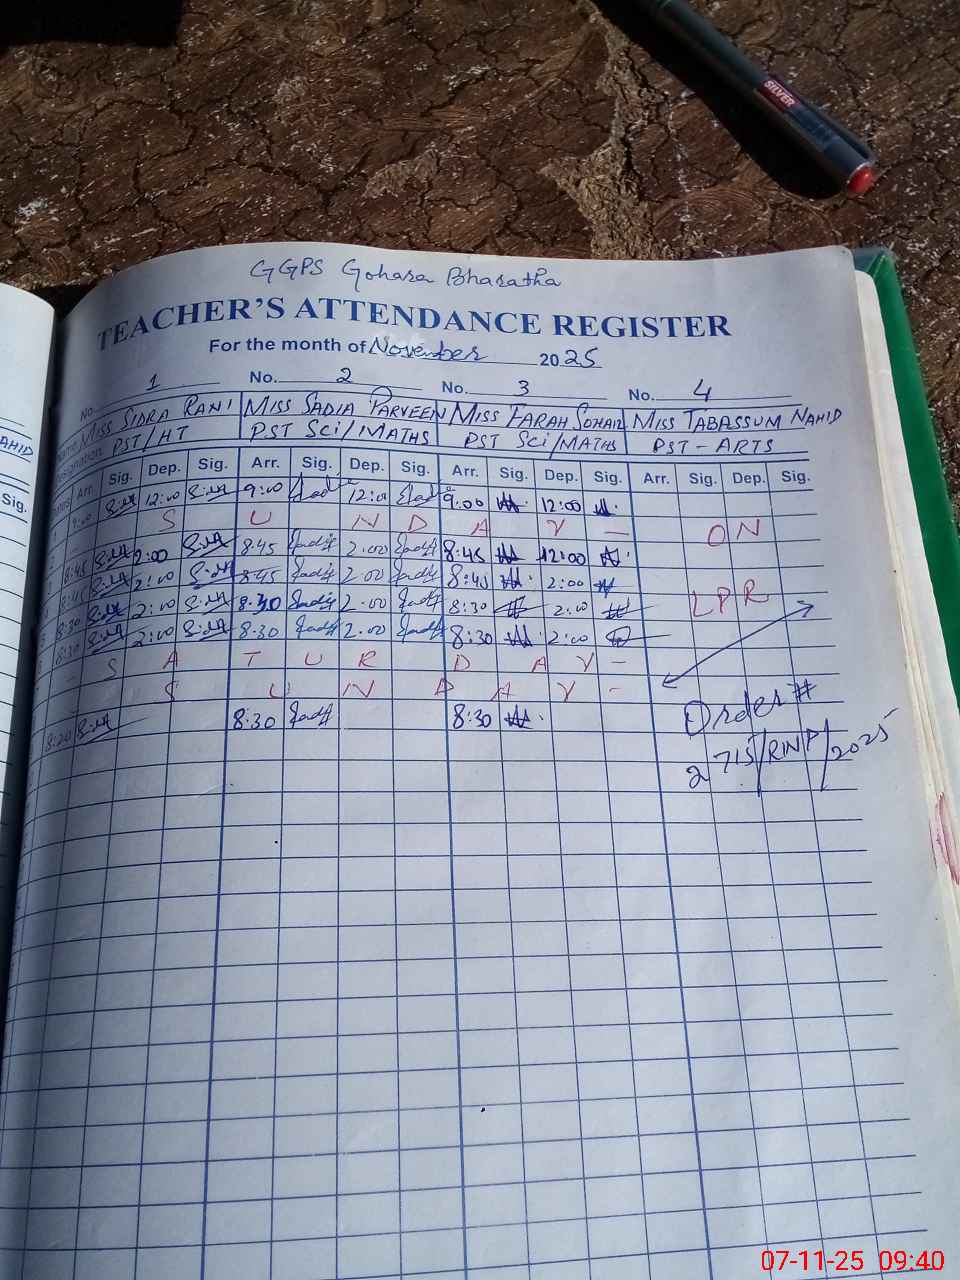 SILVER
GGPS Gohara Bharatha
TEACHER'S ATTENDANCE REGISTER
For the month of November 2025
No. 1 No. 2 No. 3 No. 4
Name Miss SIDRA RANI MISS SADIA PARVEEN MISS FARAH SOHAIL MISS TABASSUM NAHID
Designation PST/HT PST Sci/MATHS PST Sci/MATHS PST-ARTS
Arr. Sig. Dep. Sig. Arr. Sig. Dep. Sig. Arr. Sig. Dep. Sig. Arr. Sig. Dep. Sig.
9:00 12:00 9:00 12:00 9:00 12:00
S U N D A Y - ON
8:45 2:00 8.45 2.00 8:45 12:00
8:45 2:00 8.45 2.00 8:45 2:00
8:30 2:00 8.30 2.00 8:30 2:00 LPR
8:30 2:00 8.30 2.00 8:30 2:00
S A T U R D A Y -
S U N D A Y -
8:30 8:30 8:30
Order #
2715/RWP/2025
AHID
Sig.
07-11-25 09:40